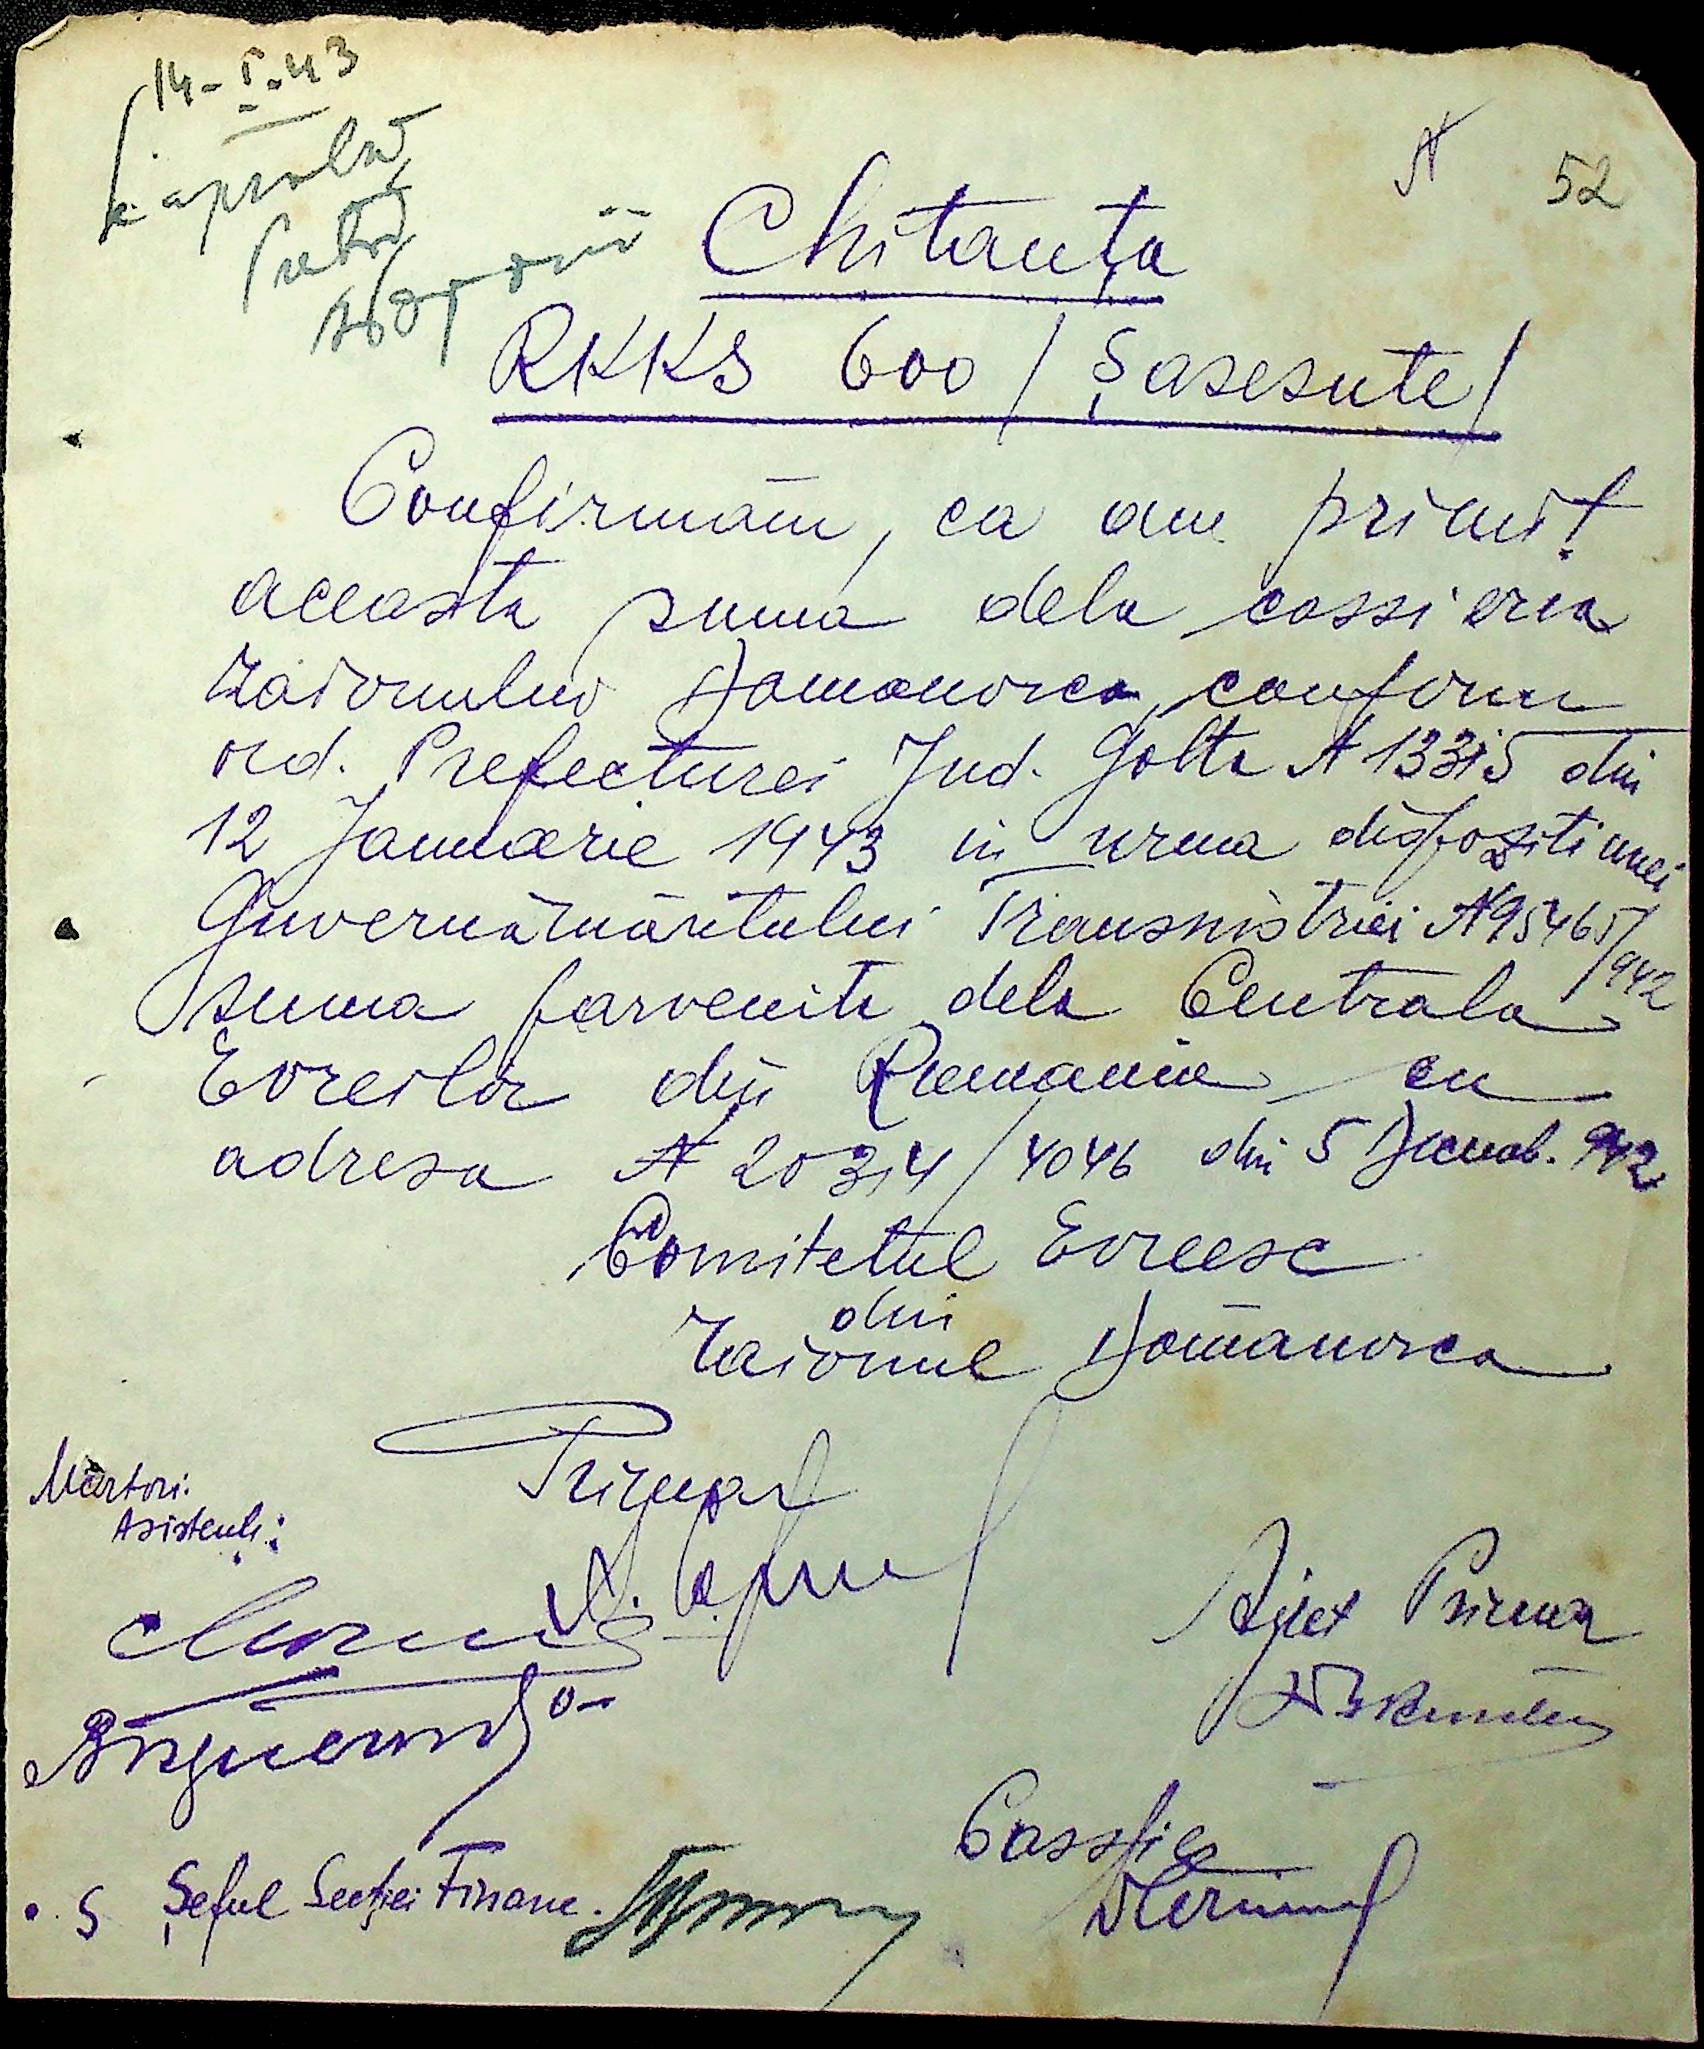 14-I.43
N 52
Chitanța
RKKS 600 / Șasesute /
Confirmăm, ca am primit
aceasta suma dela cassieria
raionului Domanovca, conform
ord. Prefecturei Jud. Golta N 13315 din
12 Januarie 1943 in urma dispozitiunei
Guvernământului Transnistriei N 95465/942
suma parvenita dela Centrala
Evreilor din Romania cu
adresa N 20314/4046 din 5 Decemb. 942
Comitetul Evreesc
din
raionul Domanovca
Martori
Asistenți:
Primar
Ajut Primar
Cassier
Șeful Secției Financ.